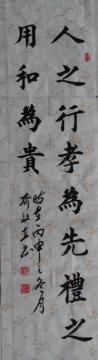 人之行孝為先禮之
用和為貴
時在丙申之冬月